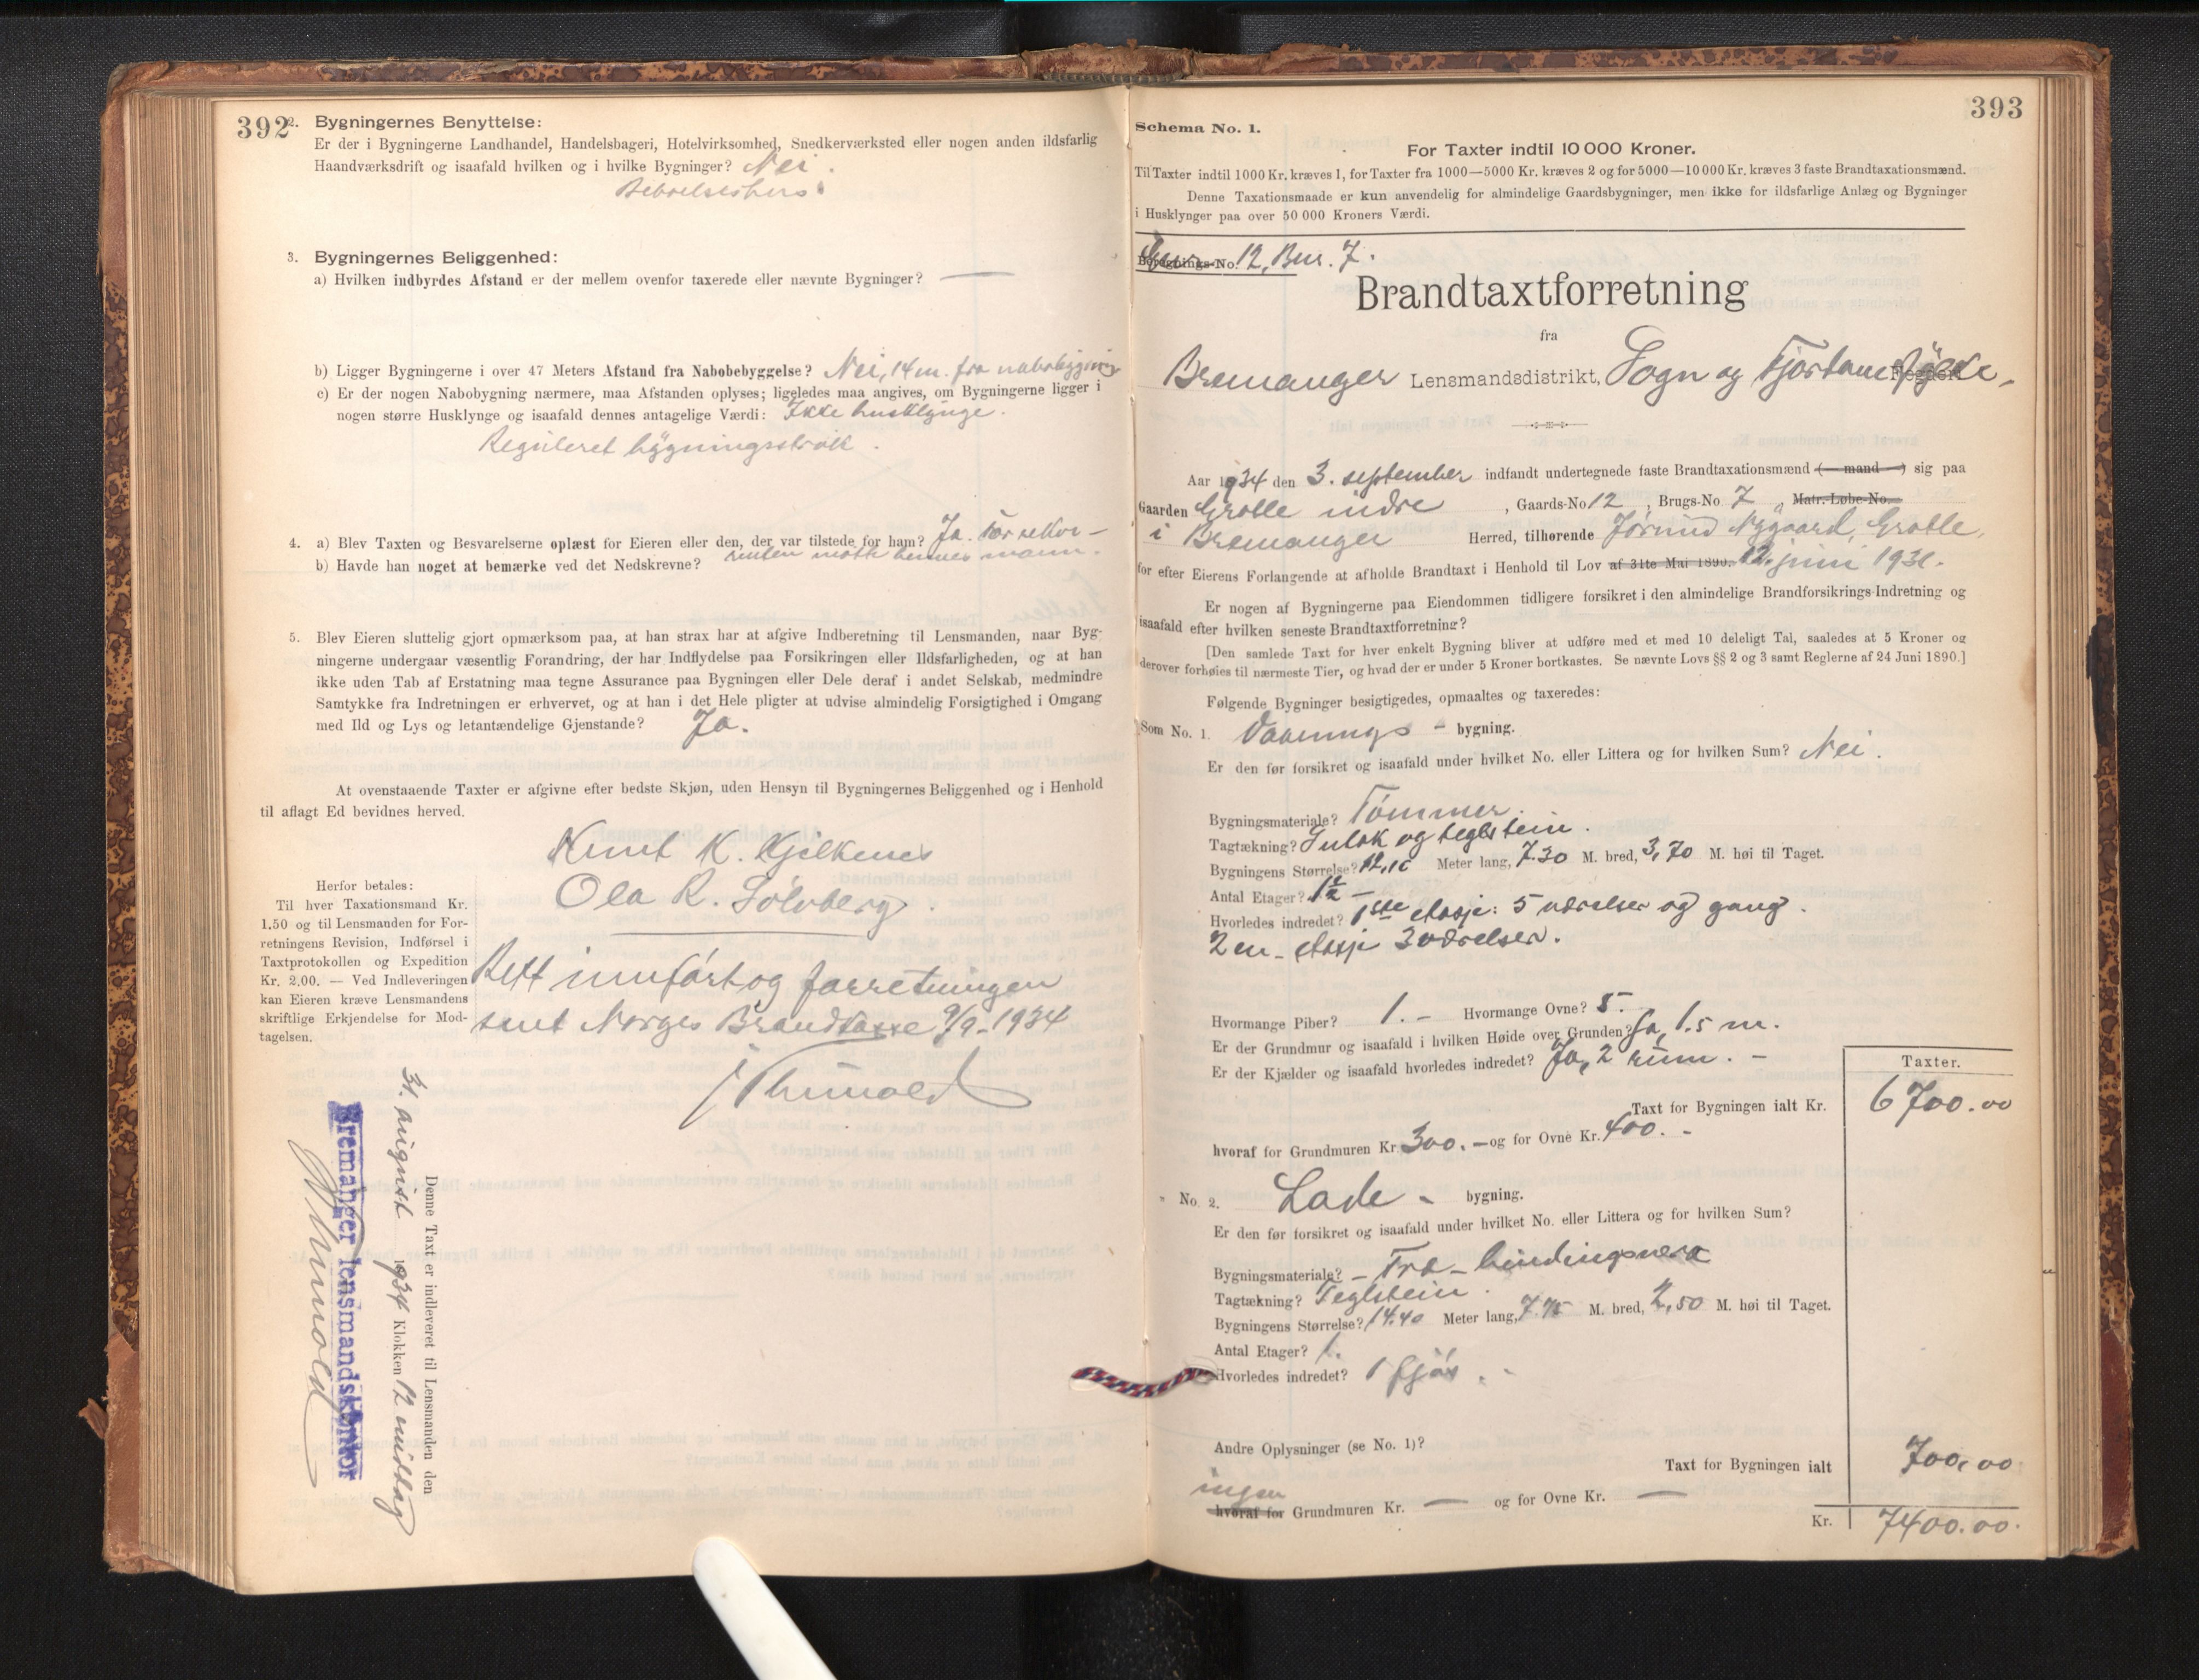 392
2. Bygningernes Benyttelse:
Er der i Bygningerne Landhandel, Handelsbageri, Hotelvirksomhed, Snedkerværksted eller nogen anden ildsfarlig
Haandværksdrift og isaafald hvilken og i hvilke Bygninger? Nei.
3. Bygningernes Beliggenhed:
a) Hvilken indbyrdes Afstand er der mellem ovenfor taxerede eller nævnte Bygninger? —
b) Ligger Bygningerne i over 47 Meters Afstand fra Nabobebyggelse? Nei, 14 m. fra nabobygging
c) Er der nogen Nabobygning nærmere, maa Afstanden oplyses; ligeledes maa angives, om Bygningerne ligger i
nogen større Husklynge og isaafald dennes antagelige Værdi: Ikke husklynge.
Reguleret bygningsstrøk.
4. a) Blev Taxten og Besvarelserne oplæst for Eieren eller den, der var tilstede for ham? Ja. For rekvi-
b) Havde han noget at bemærke ved det Nedskrevne? renten møtte hennes mann.
5. Blev Eieren sluttelig gjort opmærksom paa, at han strax har at afgive Indberetning til Lensmanden, naar Byg-
ningerne undergaar væsentlig Forandring, der har Indflydelse paa Forsikringen eller Ildsfarligheden, og at han
ikke uden Tab af Erstatning maa tegne Assurance paa Bygningen eller Dele deraf i andet Selskab, medmindre
Samtykke fra Indretningen er erhvervet, og at han i det Hele pligter at udvise almindelig Forsigtighed i Omgang
med Ild og Lys og letantændelige Gjenstande? Ja.
At ovenstaaende Taxter er afgivne efter bedste Skjøn, uden Hensyn til Bygningernes Beliggenhed og i Henhold
til aflagt Ed bevidnes herved.
Knut K. Kjelkenes
Ola R. Solvberg.
Herfor betales:
Til hver Taxationsmand Kr.
1.50 og til Lensmanden for For-
retningens Revision, Indførsel i
Taxtprotokollen og Expedition
Kr. 2.00. — Ved Indleveringen
kan Eieren kræve Lensmandens
skriftlige Erkjendelse for Mod-
tagelsen.
Rett innført og forretningen
sent Norges Brandkasse 9/9-1934
Denne Taxt er indleveret til Lensmanden den
31. august 1934 Klokken 12 middag
Bremanger lensmandskontor
393
Schema No. 1.
For Taxter indtil 10 000 Kroner.
Til Taxter indtil 1000 Kr. kræves 1, for Taxter fra 1000—5000 Kr. kræves 2 og for 5000—10 000 Kr. kræves 3 faste Brandtaxationsmænd.
Denne Taxationsmaade er kun anvendelig for almindelige Gaardsbygninger, men ikke for ildsfarlige Anlæg og Bygninger
i Husklynger paa over 50 000 Kroners Værdi.
No. 12, Bnr. 7.
Brandtaxtforretning
fra
Bremanger Lensmandsdistrikt, Sogn og Fjordane fylke.
Aar 1934 den 3. september indfandt undertegnede faste Brandtaxationsmænd (—mand—) sig paa
Gaarden Grotle indre, Gaards-No 12, Brugs-No 7, Matr.-Løbe-No.
i Bremanger Herred, tilhørende Jørund Nygaard, Grotle,
for efter Eierens Forlangende at afholde Brandtaxt i Henhold til Lov af 31te Mai 1890. 12. juni 1931.
Er nogen af Bygningerne paa Eiendommen tidligere forsikret i den almindelige Brandforsikrings-Indretning og
isaafald efter hvilken seneste Brandtaxtforretning?
[Den samlede Taxt for hver enkelt Bygning bliver at udføre med et med 10 deleligt Tal, saaledes at 5 Kroner og
derover forhøies til nærmeste Tier, og hvad der er under 5 Kroner bortkastes. Se nævnte Lovs §§ 2 og 3 samt Reglerne af 24 Juni 1890.]
Følgende Bygninger besigtigedes, opmaaltes og taxeredes:
Som No. 1. Vaanings - bygning.
Er den før forsikret og isaafald under hvilket No. eller Littera og for hvilken Sum? Nei.
Bygningsmateriale? Tømmer.
Tagtækning? Sutak og teglstein.
Bygningens Størrelse? 12,10 Meter lang, 7.30 M. bred, 3,70 M. høi til Taget.
Antal Etager? 1½ —
Hvorledes indredet? 1ste etasje: 5 værelser og gang.
2en etasje 3 værelser.
Hvormange Piber? 1. — Hvormange Ovne? 5.
Er der Grundmur og isaafald i hvilken Høide over Grunden? Ja, 1.5 m.
Er der Kjælder og isaafald hvorledes indredet? Ja, 2 rum. —
Taxter.
Taxt for Bygningen ialt Kr. 6700.00
hvoraf for Grundmuren Kr. 300. — og for Ovne Kr. 400. —
No. 2. Lade - bygning.
Er den før forsikret og isaafald under hvilket No. eller Littera og for hvilken Sum?
Bygningsmateriale? — Tre - bindingsverk
Tagtækning? Teglstein.
Bygningens Størrelse? 14.40 Meter lang, 7.75 M. bred, 2,50 M. høi til Taget.
Antal Etager? 1.
Hvorledes indredet? 1 fjøs.
Andre Oplysninger (se No. 1)?
Taxt for Bygningen ialt 700.00
ingen
hvoraf for Grundmuren Kr. — og for Ovne Kr. —
Kr. 7400.00.